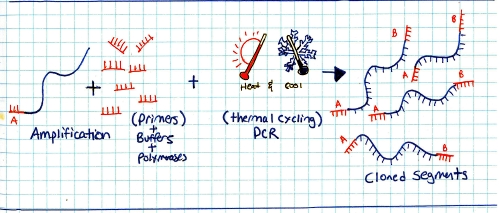 A
Amplification
+
(Primers)
+
Buffers
+
Polymerases
+
Heat & Cool
(thermal cycling)
PCR
B
B
A
A
B
A
A
B
Cloned Segments